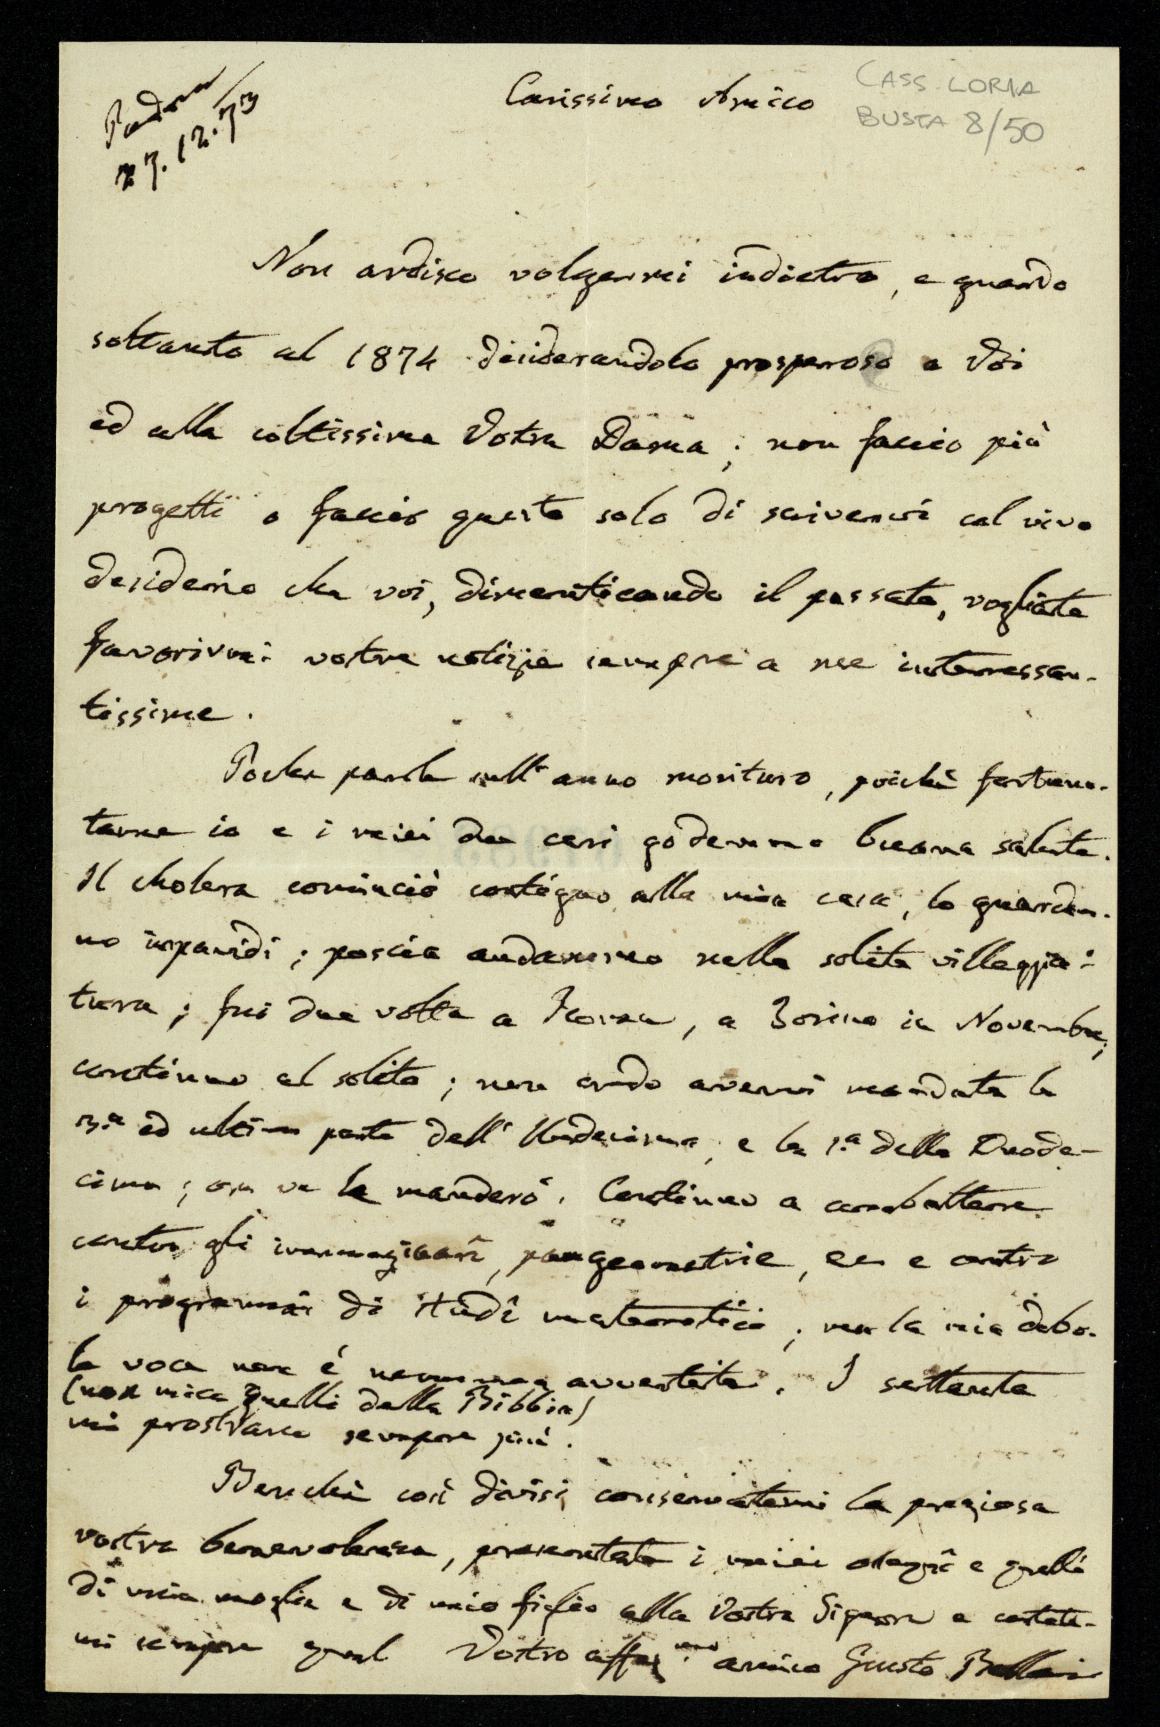 Padova
27.12.73
Carissimo Amico
CASS. LORIA
BUSTA 8/50
Non ardisco volgermi indietro, e guardo
soltanto al 1874 desiderandolo prosperoso a Voi
ed alla coltissima Vostra Dama; non faccio più
progetti o faccio questo solo di scrivervi col vivo
desiderio che voi, dimenticando il passato, vogliate
favorirmi vostre notizie sempre a me interessan-
tissime.
Poche parole sull'anno morituro, poichè fortuna-
tamente io e i miei due cari godemmo buona salute.
Il cholera cominciò contiguo alla mia casa, lo guardam-
mo impavidi; poscia andammo nella solita villeggia-
tura; fui due volte a Roma, a Torino in Novembre;
continuo al solito; non credo avervi mandata la
3.a ed ultima parte dell'Undecima, e la 1.a della Duode-
cima; ora ve la manderò. Continuo a combattere
contro gli immaginarî, pangeometrie, ec e contro
i programmi di studî matematici; ma la mia debo-
le voce non è nemmeno avvertita. I settanta
(non mica quelli della Bibbia)
mi prostrano sempre più.
Benchè così divisi conservatemi la preziosa
vostra benevolenza, presentate i miei ossequî e quelli
di mia moglie e di mio figlio alla Vostra Signora e contate-
mi sempre qual Vostro affez.mo amico Giusto Bellavitis